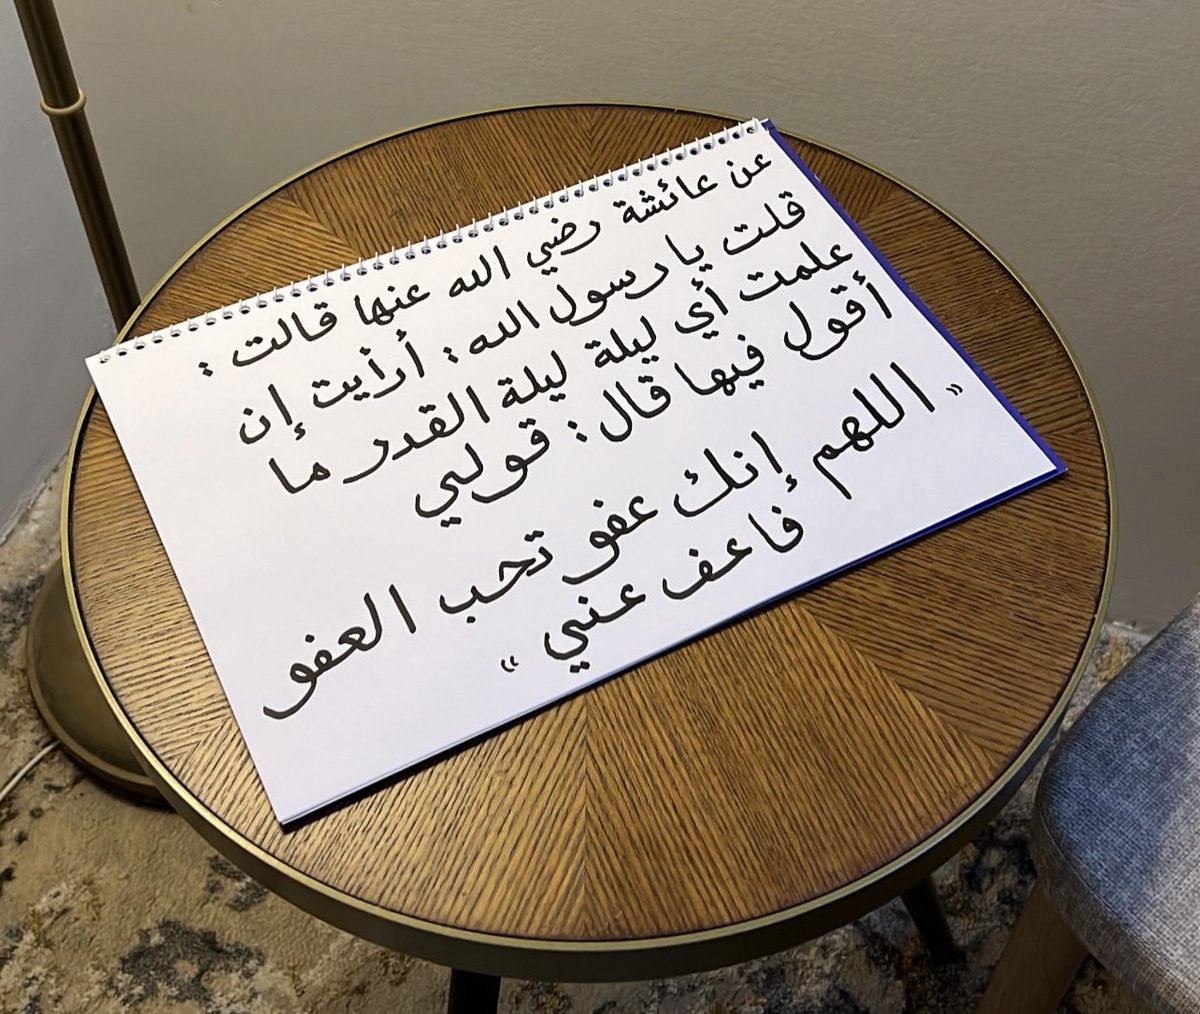 عن عائشة رضي الله عنها قالت :
قلت يا رسول الله : أرأيت إن
علمت أي ليلة ليلة القدر ما
أقول فيها قال : قولي
" اللهم إنك عفو تحب العفو
فاعف عني "